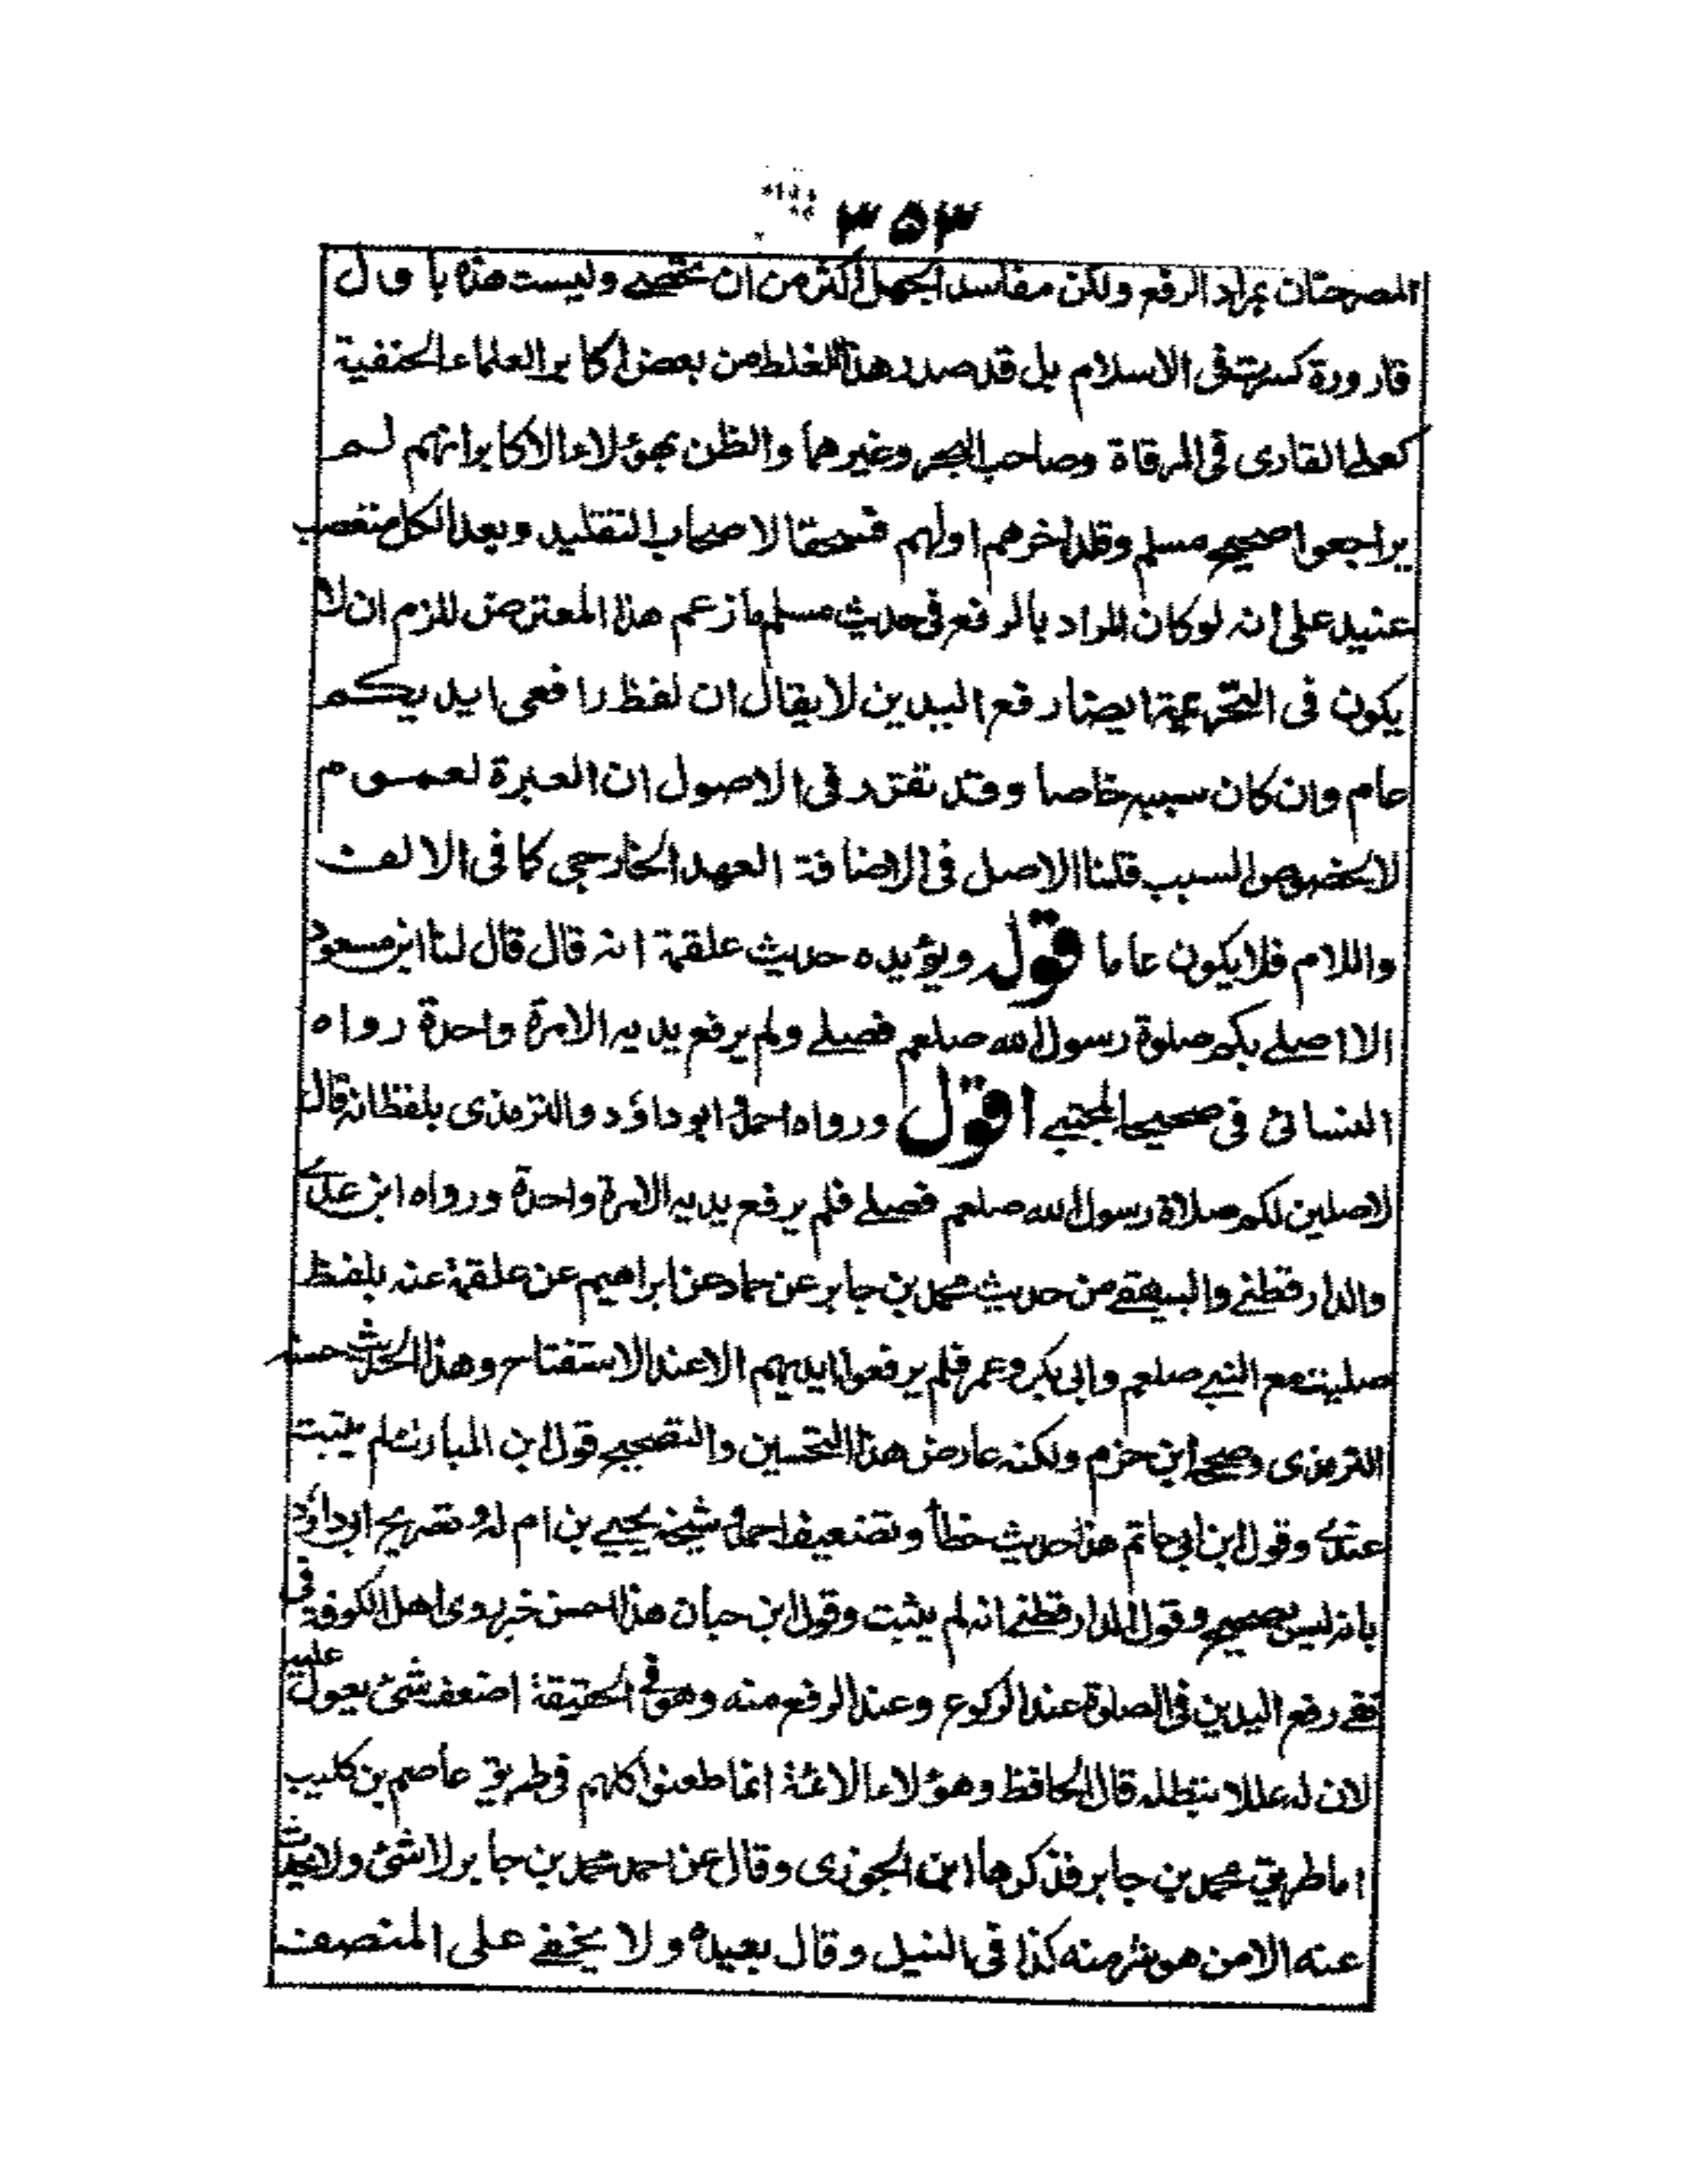 ٣٥٣
المصرحتان بمراد الرفع ولكن مفاسد الجهل اكثر من ان تحصى وليست هذه باول
قارورة كسرت فى الاسلام بل قد صدر هذا الغلط من بعض اكابر العلماء الحنفية
كعلى القارى فى المرقاة وصاحب البحر وغيرهما والظن بهؤلاء الاكابر انهم لم
يراجعوا صحيح مسلم وقلد اخرهم اولهم فسحقا لاصحاب التقليد وبعدا لكل متعصب
عنيد على انه لو كان المراد بالرفع فى حديث مسلم ما زعم هذا المعترض للزم ان لا
يكون فى التحريمة ايضا رفع اليدين لا يقال ان لفظ رافعى ايديكم
عام وان كان سببه خاصا وقد تقرر فى الاصول ان العبرة لعموم
لا بخصوص السبب قلنا الاصل فى الاضافة العهد الخارجى كما فى الالف
واللام فلا يكون عاما قوله ويؤيده حديث علقمة انه قال قال لنا ابن مسعود
الا اصلے بكم صلوة رسول الله صلعم فصلے ولم يرفع يديه الا مرة واحدة رواه
النسائى فى صحيحه المجتبے اقول ورواه احمد وابو داؤد والترمذى بلفظ انه قال
لاصلين لكم صلاة رسول الله صلعم فصلے فلم يرفع يديه الا مرة واحدة ورواه ابن عدے
والدارقطنے والبيهقے من حديث محمد بن جابر عن حماد عن ابراهيم عن علقمة عنه بلفظ
صليت مع النبے صلعم وابى بكر وعمر فلم يرفعوا ايديهم الا عند الاستفتاح وهذا الحديث حسنه
الترمذى وصححه ابن حزم ولكنه عارض هذا التحسين والتصحيح قول ابن المبارك لم يثبت
عندے وقول ابن ابى حاتم هذا حديث خطأ وتضعيف احمد وشيخه يحيے بن ادم له وتصريح ابى داؤد
بانه ليس بصحيح وقول الدارقطنے انه لم يثبت وقول ابن حبان هذا احسن خبر روى اهل الكوفة فى
نفے رفع اليدين فى الصلوة عند الركوع وعند الرفع منه وهو فى الحقيقة اضعف شئ يعول عليه
لان له عللا تبطله قال الحافظ وهؤلاء الائمة انما طعنوا كلهم فى طريق عاصم بن كليب
اما طريق محمد بن جابر فذكرها ابن الجوزى وقال عن احمد محمد بن جابر لا شئ ولا يحدث
عنه الا من هو شر منه كذا فى النيل وقال بعيده ولا يخفے على المنصف